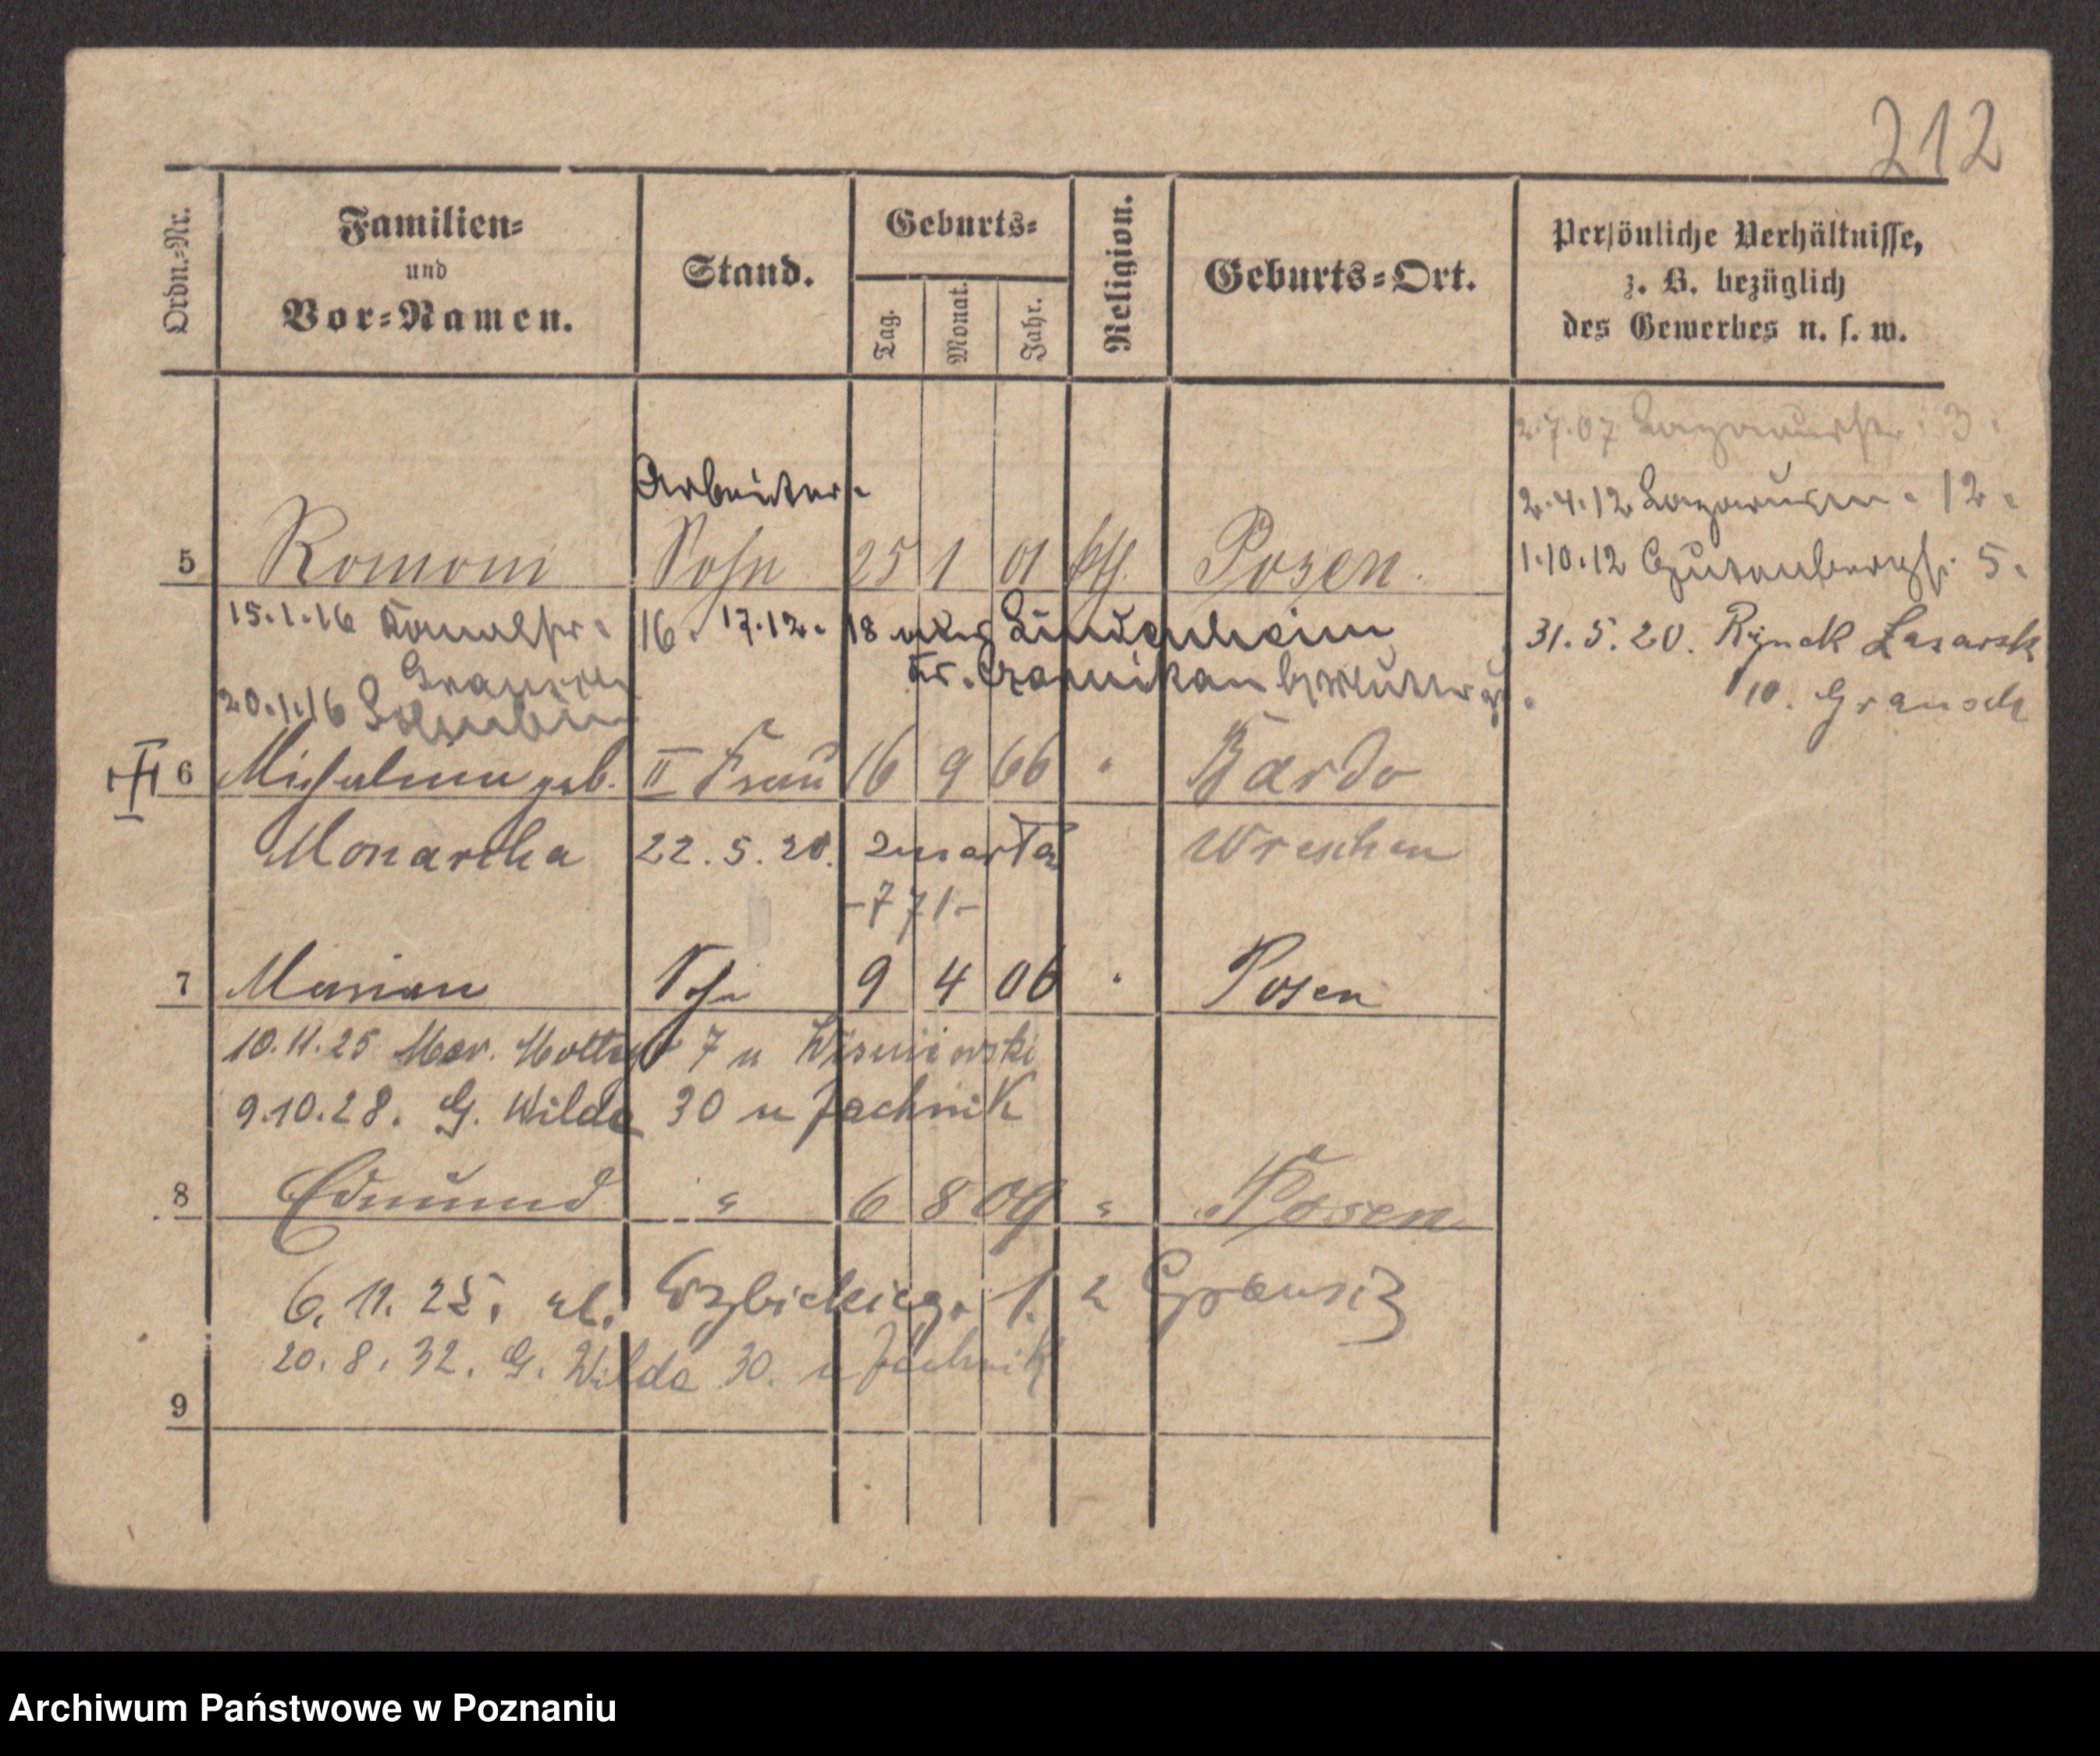 212
Ordn.-Nr.
Familien-
und
Vor-Namen.
Stand.
Geburts-
Tag.
Monat.
Jahr.
Religion.
Geburts-Ort.
Persönliche Verhältnisse,
z. B. bezüglich
des Gewerbes u. s. w.
2.7.07 Lazarusstr. 3.
Arbeiter.
2.4.12 Lazarusstr. 12.
5 Roman Sohn 25 1 01 kth. Posen.
1.10.12 Gutenbergstr. 5.
15.1.16 Kanalstr. 16. 17.12.18 Lindenheim
31.5.20. Rynek Lasarsk
Kr. Czarnikau
10. Grausch
20.1.16
6 Michalina geb. II Frau 16 9 66 " Bardo
Monarcha 22.5.20. zmarła Wreschen
-771-
7 Marian Sohn 9 4 06 " Posen
10.11.25 Mar. 7 u Wisniowski
9.10.28. G. Wilda 30 u Jachnik
8 Edmund " 6 8 09 " Posen
6.11.25. ul. 1. Grausiz
20.8.32. G. Wilda 30. u Jachnik
9
Archiwum Państwowe w Poznaniu